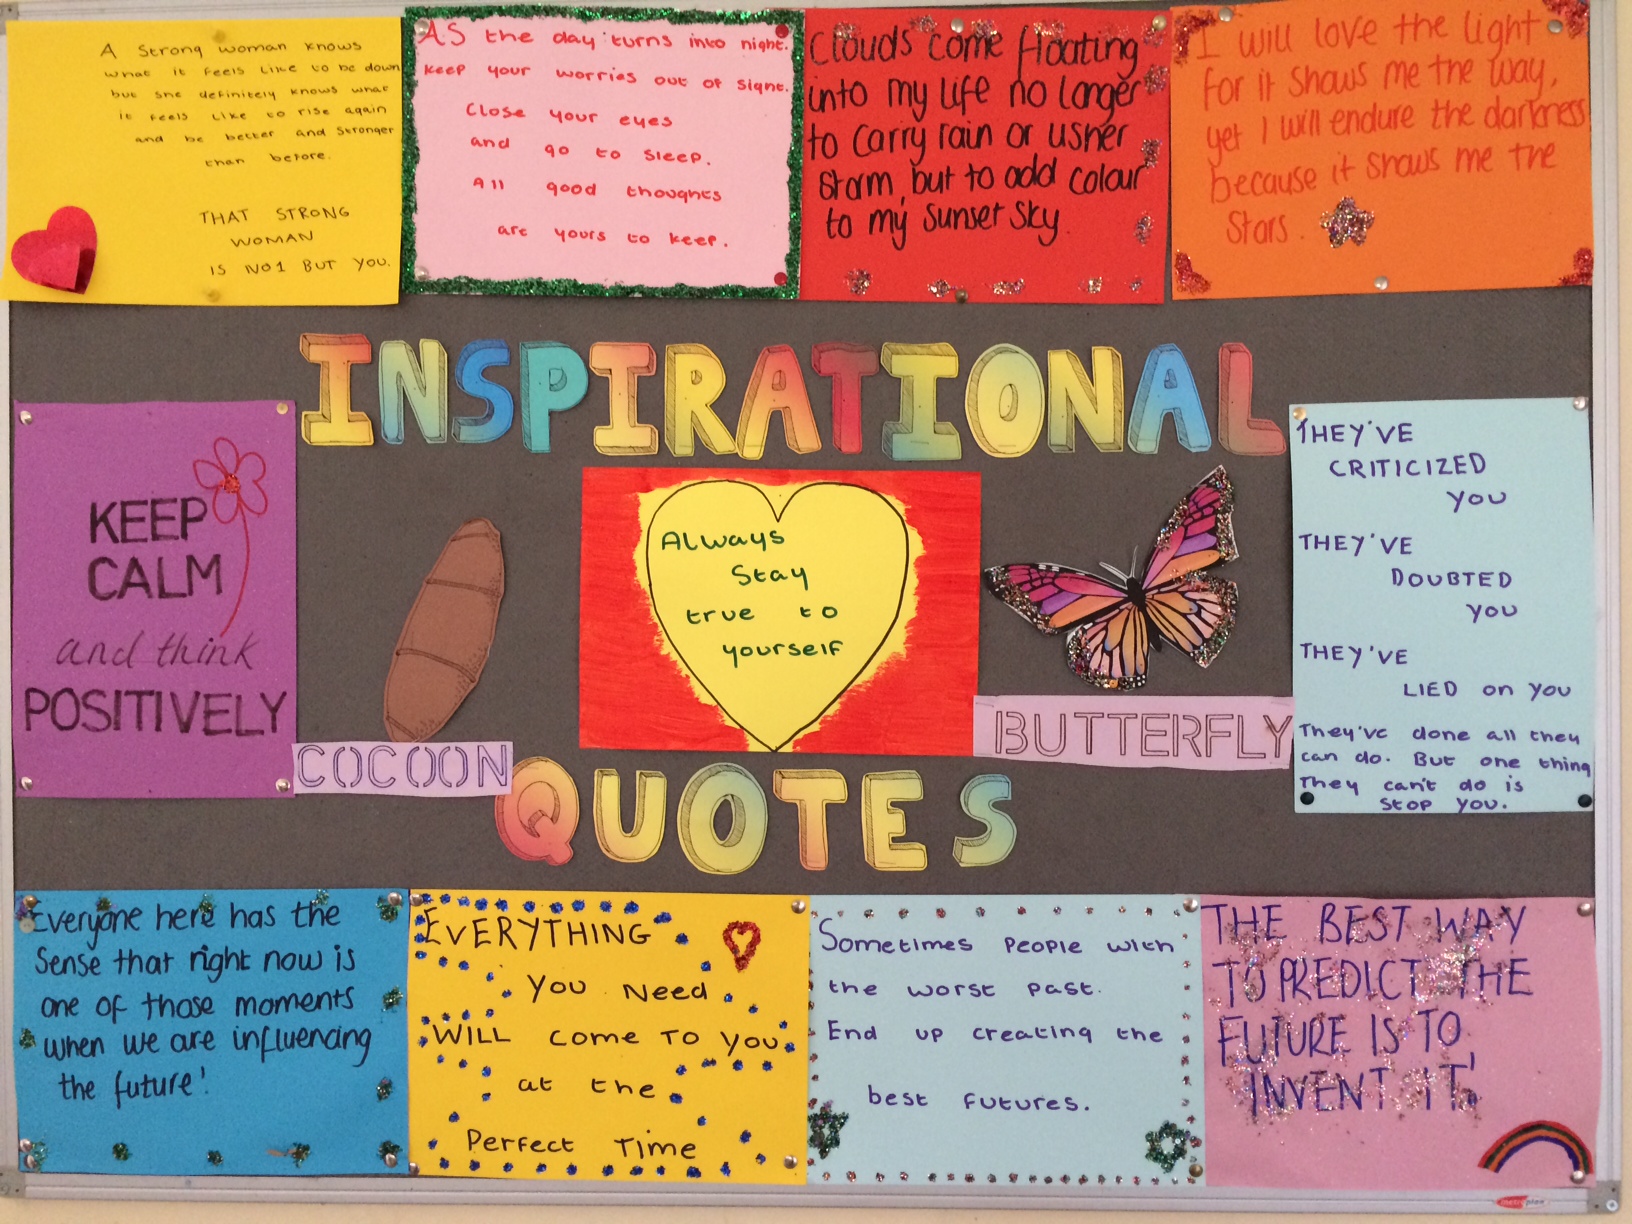 A Strong woman knows
what it feels like to be down
but she definitely knows what
it feels like to rise again
and be better and stronger
than before.
THAT STRONG
WOMAN
IS NO1 BUT YOU.
AS the day turns into night.
keep your worries out of signt.
Close your eyes
and go to sleep.
All good thoughts
are yours to keep.
Clouds come floating
into my life no longer
to carry rain or usher
storm, but to add colour
to my sunset sky.
I will love the light
for it shows me the way,
yet I will endure the darkness
because it shows me the
Stars.
INSPIRATIONAL
KEEP
CALM
and think
POSITIVELY
COCOON
Always
Stay
true to
yourself
BUTTERFLY
THEY'VE
CRITICIZED
YOU
THEY'VE
DOUBTED
YOU
THEY'VE
LIED on you
They've done all they
can do. But one thing
They can't do is
Stop you.
QUOTES
Everyone here has the
Sense that right now is
one of those moments
when we are influencing
the future!
EVERYTHING
You Need
WILL come TO you
at the
Perfect Time
Sometimes people with
the worst past.
End up creating the
best futures.
THE BEST WAY
TO PREDICT THE
FUTURE IS TO
INVENT IT,
metroplan